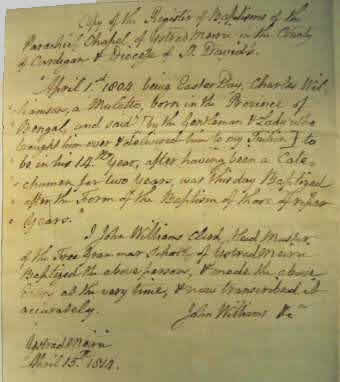 Copy of the Register of Baptisms of the
Parochial Chapel of Ystrad Meirn in the County
of Cardigan & Diocese of St. David's.
April 1st. 1804 being Easter Day, Charles Wil
liamson, a Mulatto, born in the Province of
Bengal, and said [by the Gentleman & Lady who
brought him over & delivered him to my Tuition] to
be in his 14th Year, after having been a Cate-
chumen for two years, was this day Baptized
after the Form of the Baptism of those of riper
Years."
I John Williams Clerk, Head Master
of the Free Grammar School of Ystrad Meirn
Baptized the above person, & made the above
entry at the very time, & now transcribed it
accurately.
John Williams
Ystrad Meirn
April 15th. 1814.